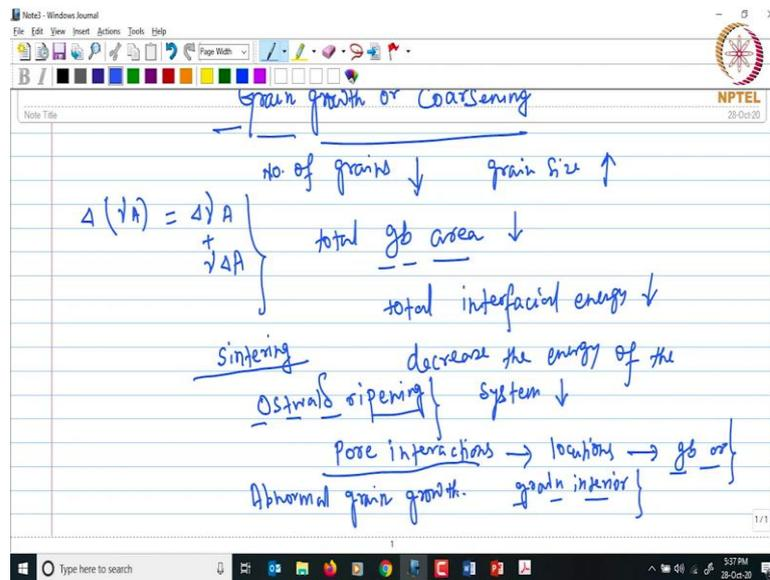 Note3 - Windows Journal
File Edit View Insert Actions Tools Help
Page Width
B I
NPTEL
Note Title
28-Oct-20
Grain growth or Coarsening
No. of grains ↓ grain size ↑
Δ(γA) = ΔγA
+
γΔA
total gb area ↓
total interfacial energy ↓
Sintering decrease the energy of the
Ostwald ripening } system ↓
Pore interactions → locations → gb or
Abnormal grain growth. grain interior
1/1
1
Type here to search
5:37 PM
28-Oct-20